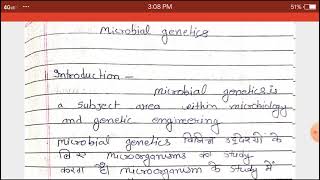 4G 3:08 PM
microbial genetics
Introduction -
microbial genetics is
a subject area within microbiology
and genetic engineering
microbial genetics विभिन्न उद्देश्यों के
लिए microorganisms का study
करता है microorganism के study में